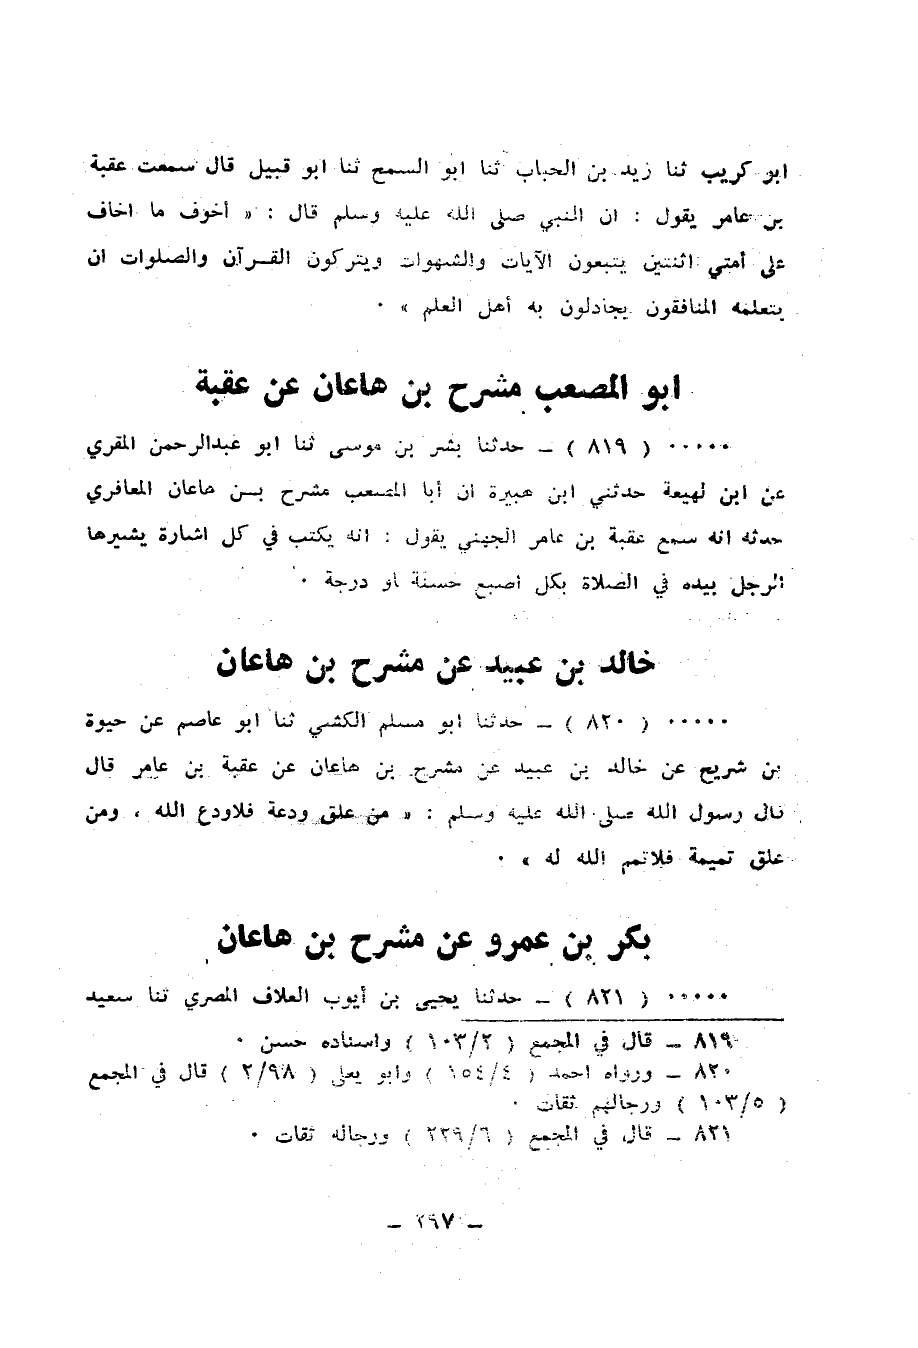 ابو كريب ثنا زيد بن الحباب ثنا ابو السمح ثنا ابو قبيل قال سمعت عقبة
بن عامر يقول : ان النبي صلى الله عليه وسلم قال : « أخوف ما اخاف
على أمتي اثنتين يتبعون الآيات والشهوات ويتركون القـرآن والصلوات ان
يتعلمه المنافقون يجادلون به أهل العلم » ٠
ابو المصعب مشرح بن هاعان عن عقبة
٠٠٠٠٠ ( ٨١٩ ) ــ حدثنا بشر بن موسى ثنا ابو عبدالرحمن المقري
عن ابن لهيعة حدثني ابن هبيرة ان أبا المصعب مشرح بـن هاعان المعافري
حدثه انه سمع عقبة بن عامر الجهني يقول : انه يكتب في كل اشارة يشيرها
الرجل بيده في الصلاة بكل أصبع حسنة او درجة ٠
خالد بن عبيد عن مشرح بن هاعان
٠٠٠٠٠ ( ٨٢٠ ) ــ حدثنا ابو مسلم الكشي ثنا ابو عاصم عن حيوة
بن شريح عن خالد بن عبيد عن مشرح بن هاعان عن عقبة بن عامر قال
قال رسول الله صلى الله عليه وسلم : « من علق ودعة فلاودع الله ، ومن
علق تميمة فلاتمم الله له » ٠
بكر بن عمرو عن مشرح بن هاعان
٠٠٠٠٠ ( ٨٢١ ) ــ حدثنا يحيى بن أيوب العلاف المصري ثنا سعيد
٨١٩ ــ قال في المجمع ( ١٠٣/٢ ) واسناده حسن ٠
٨٢٠ ــ ورواه احمد ( ١٥٤/٤ ) وابو يعلى ( ٢/٩٨ ) قال في المجمع
( ١٠٣/٥ ) ورجالهم ثقات ٠
٨٢١ ــ قال في المجمع ( ٢٢٩/٦ ) ورجاله ثقات ٠
ــ ٢٩٧ ــ